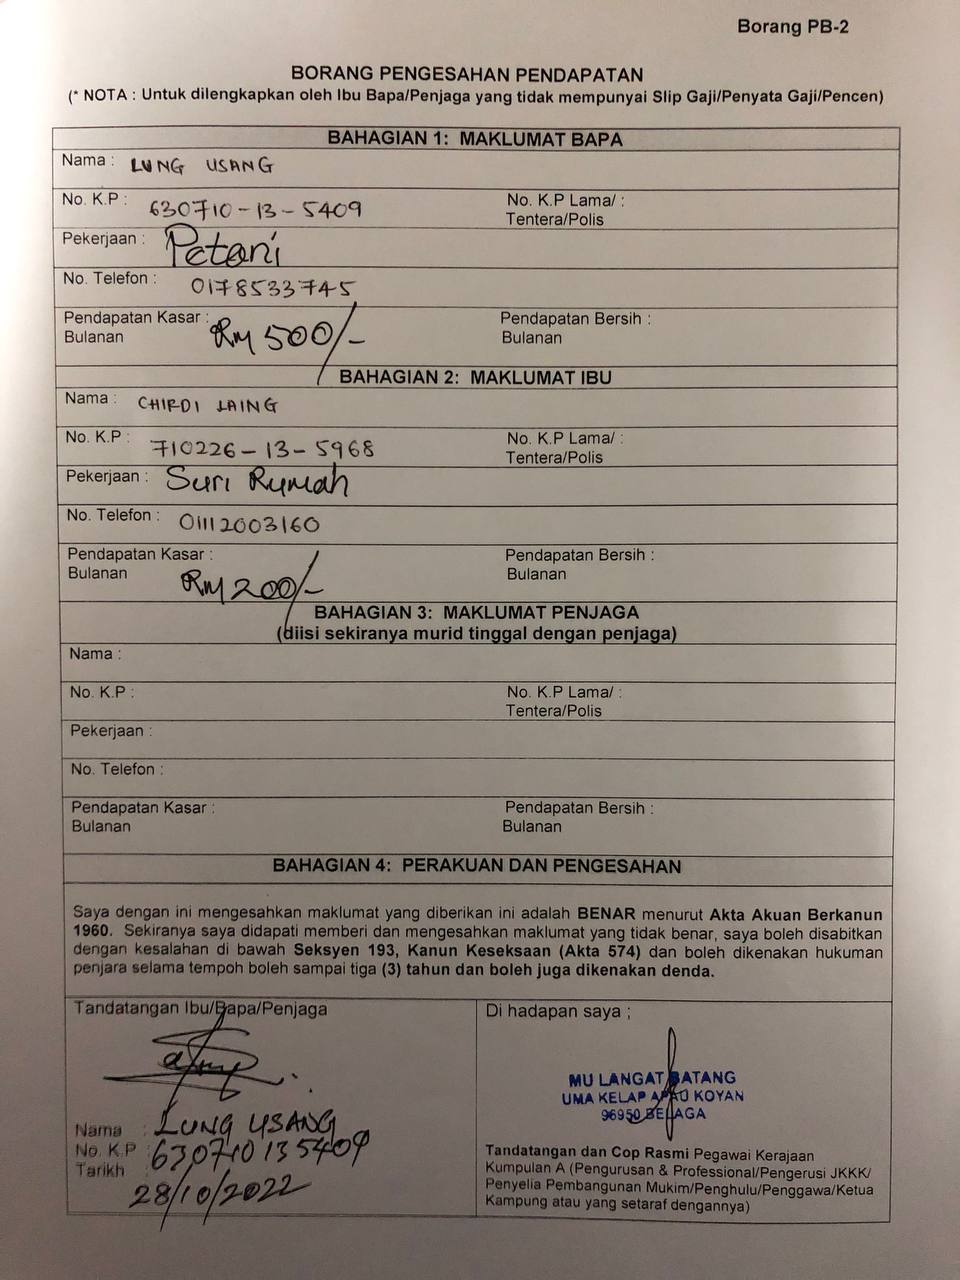 Borang PB-2
BORANG PENGESAHAN PENDAPATAN
(* NOTA : Untuk dilengkapkan oleh Ibu Bapa/Penjaga yang tidak mempunyai Slip Gaji/Penyata Gaji/Pencen)
BAHAGIAN 1: MAKLUMAT BAPA
Nama : LUNG USANG
No. K.P : 630710-13-5409 No. K.P Lama/ :
Tentera/Polis
Pekerjaan : Petani
No. Telefon : 0178533745
Pendapatan Kasar : RM 500/- Pendapatan Bersih :
Bulanan Bulanan
BAHAGIAN 2: MAKLUMAT IBU
Nama : CHIRDI LAING
No. K.P : 710226-13-5968 No. K.P Lama/ :
Tentera/Polis
Pekerjaan : Suri Rumah
No. Telefon : 01112003160
Pendapatan Kasar : RM 200/- Pendapatan Bersih :
Bulanan Bulanan
BAHAGIAN 3: MAKLUMAT PENJAGA
(diisi sekiranya murid tinggal dengan penjaga)
Nama :
No. K.P : No. K.P Lama/ :
Tentera/Polis
Pekerjaan :
No. Telefon :
Pendapatan Kasar : Pendapatan Bersih :
Bulanan Bulanan
BAHAGIAN 4: PERAKUAN DAN PENGESAHAN
Saya dengan ini mengesahkan maklumat yang diberikan ini adalah BENAR menurut Akta Akuan Berkanun
1960. Sekiranya saya didapati memberi dan mengesahkan maklumat yang tidak benar, saya boleh disabitkan
dengan kesalahan di bawah Seksyen 193, Kanun Keseksaan (Akta 574) dan boleh dikenakan hukuman
penjara selama tempoh boleh sampai tiga (3) tahun dan boleh juga dikenakan denda.
Tandatangan Ibu/Bapa/Penjaga
Nama : LUNG USANG
No. K.P : 630710135409
Tarikh : 28/10/2022
Di hadapan saya ;
MU LANGAT BATANG
UMA KELAP APAU KOYAN
96950 BELAGA
Tandatangan dan Cop Rasmi Pegawai Kerajaan
Kumpulan A (Pengurusan & Professional/Pengerusi JKKK/
Penyelia Pembangunan Mukim/Penghulu/Penggawa/Ketua
Kampung atau yang setaraf dengannya)